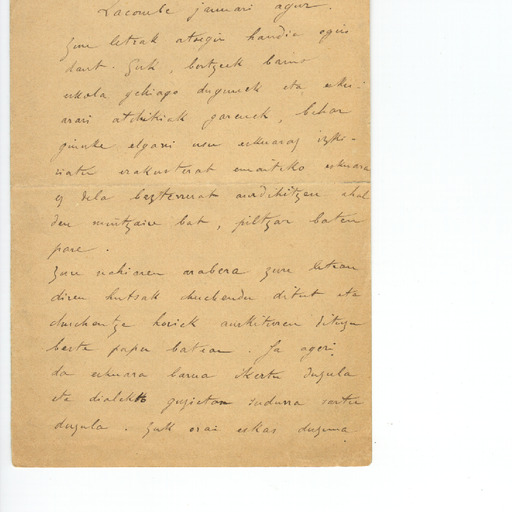 Lacombe jaunari agur.
Zure letrak atsegin handia egin
daut. Guk, bertzeek baino
eskola gehiago dugunek eta esku-
arari atchikiak garenek, behar
ginuke elgarri usu eskuaraz izki-
riatu erakusterat emaiteko eskuara
ez dela bazterrerat aurdikitzen ahal
den mintzaire bat, piltzar baten
pare.
Zure nahiaren arabera zure letran
diren hutsak chuchendu ditut eta
chuchentze horiek aurkituren dituzu
beste paper batean. Ja ageri
da eskuara barna ikertu duzula
eta dialekto guzietan sudurra sartu
duzula. Guk orai eskas duguna